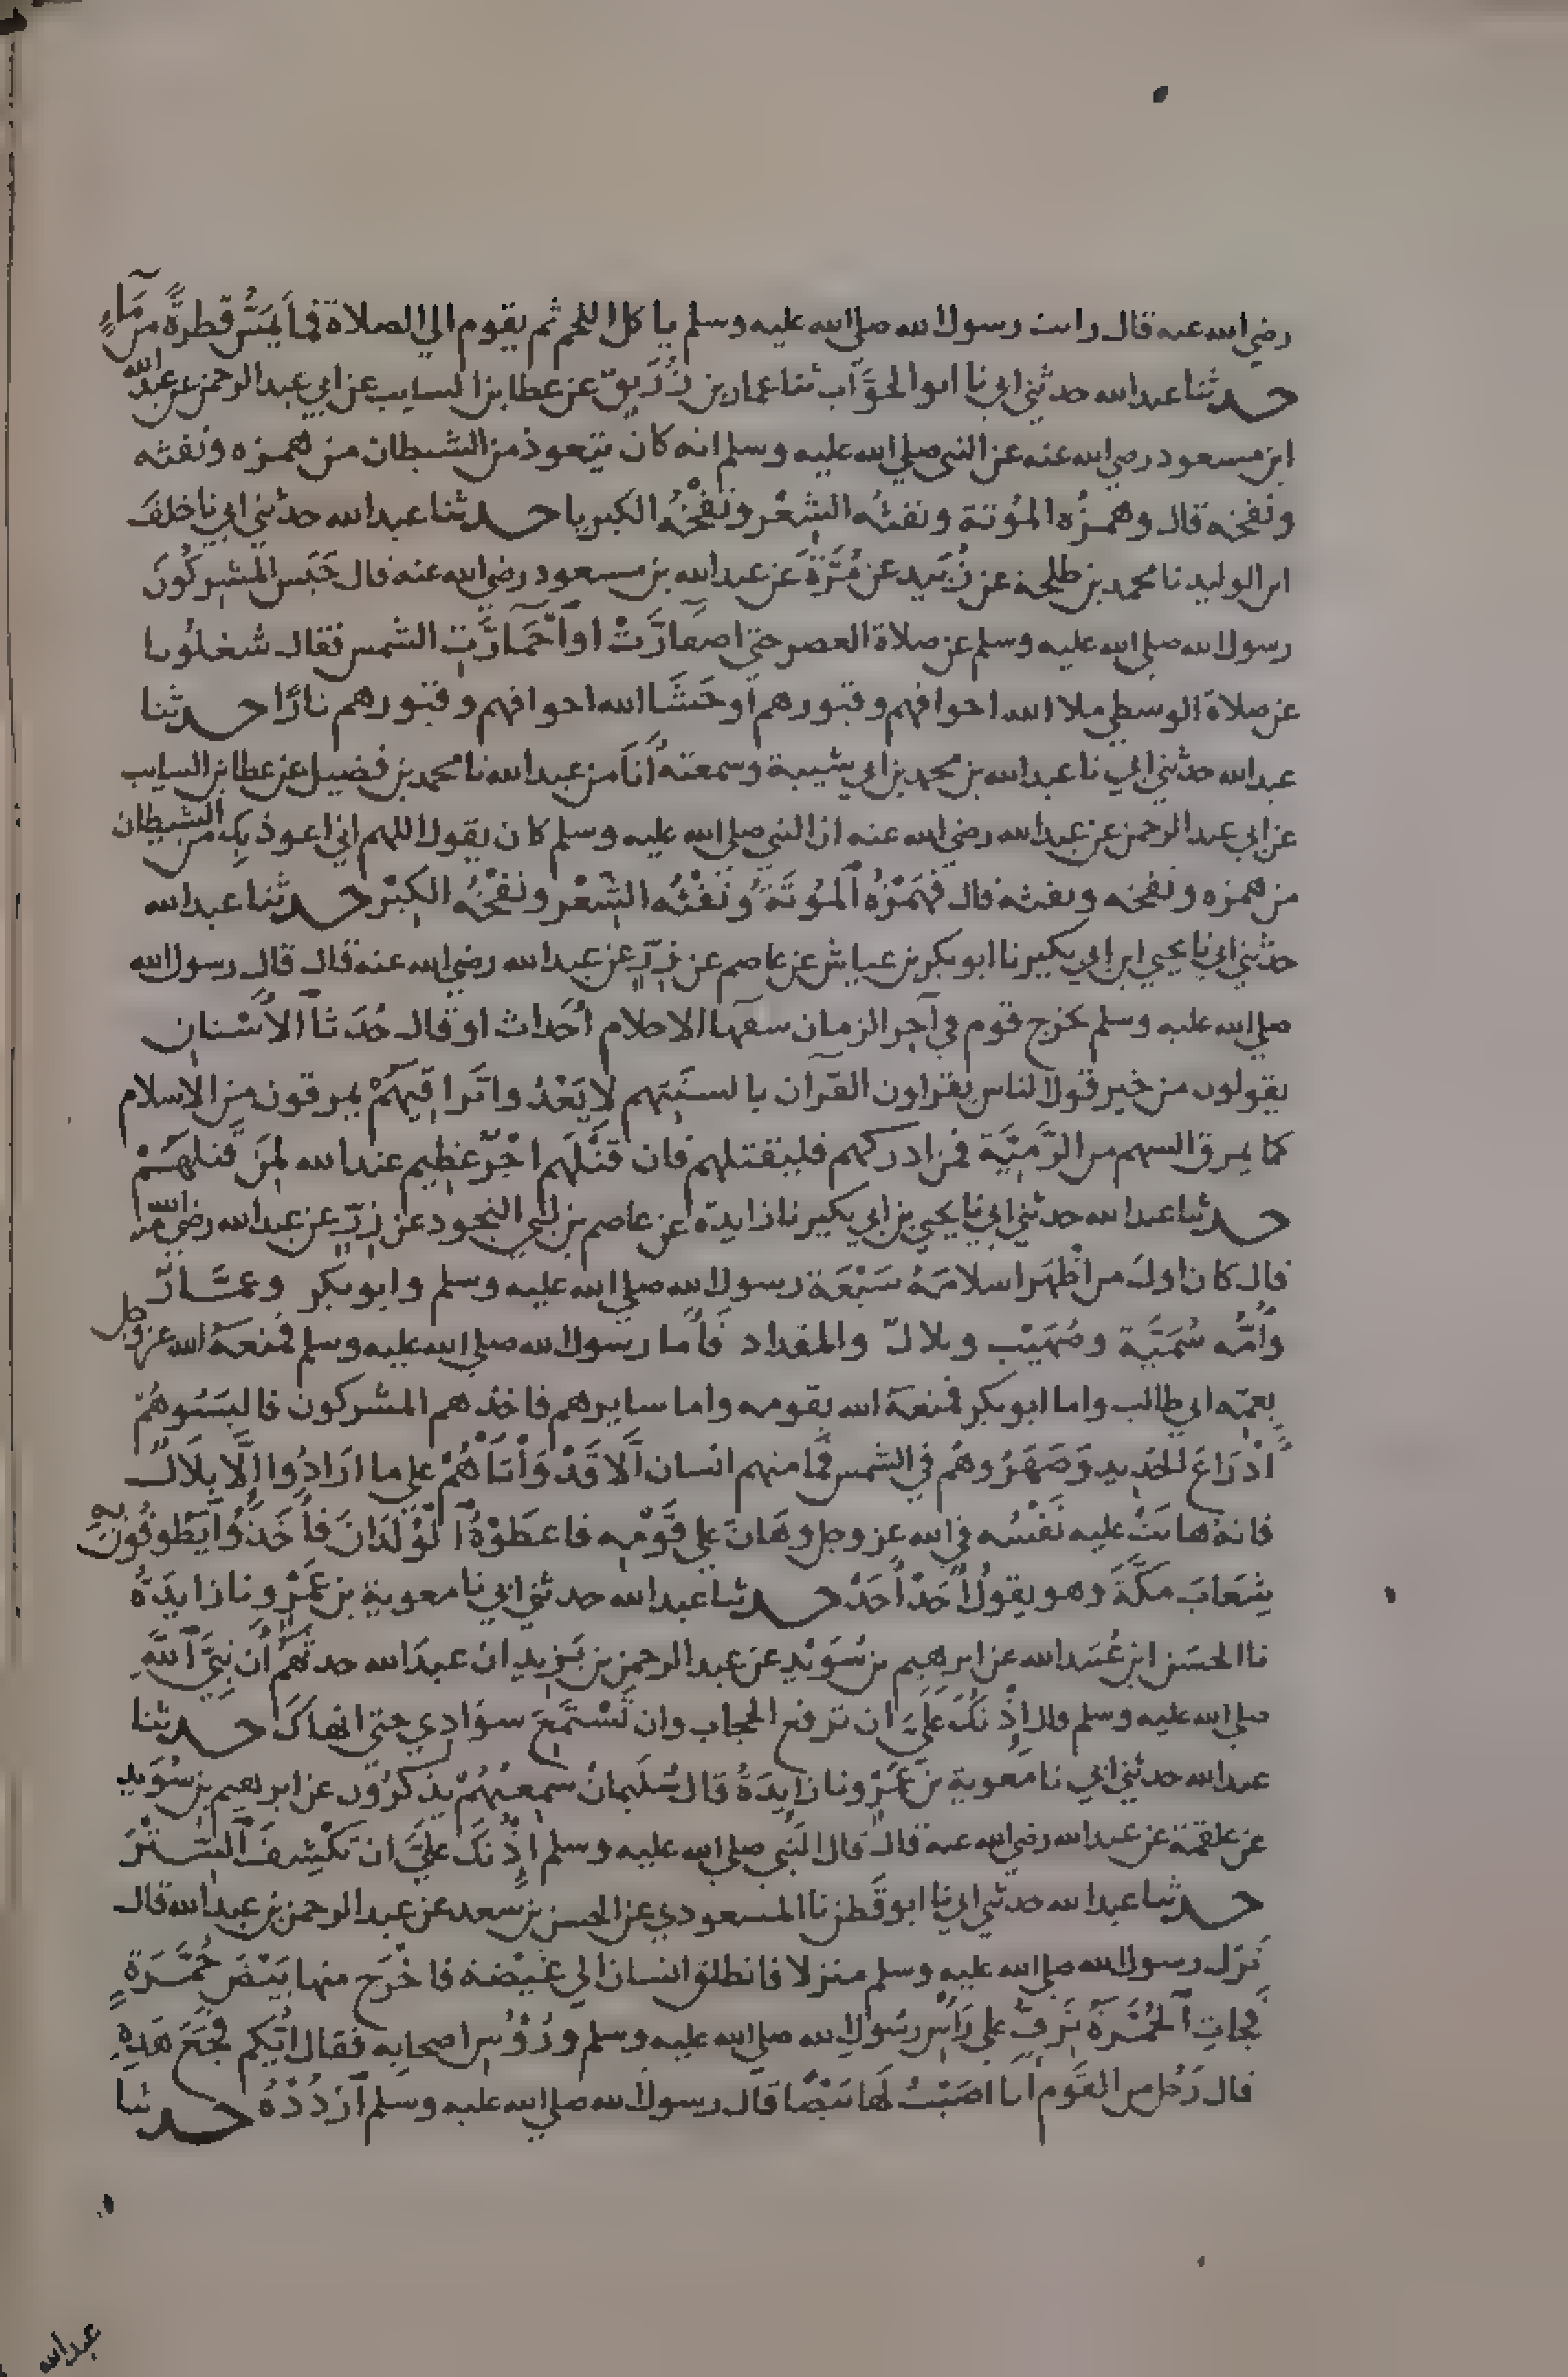 رضي الله عنه قال رايت رسول الله صلى الله عليه وسلم ياكل اللحم ثم يقوم الي الصلاة فما يَمَسُّ قطرةً من مَآءٍ
حدثنا عبد الله حدثني ابي نا ابو الجَوَّاب ثنا عمار بن زُرَيق عن عطا بن السايب عن ابي عبد الرحمن عن عبد الله
ابن مسعود رضي الله عنه عن النبي صلى الله عليه وسلم انه كان يتعوذ من الشيطان من همزه ونفثه
ونفخه قال وهمزُه الموُتة ونفثُه الشِعْر ونَفْخُهُ الكبريا حدثنا عبد الله حدثني ابي نا خلف
ابن الوليد نا محمد بن طلحة عن زُبَيد عن مُرَّةَ عن عبد الله بن مسعود رضي الله عنه قال حَبَس المشركُونَ
رسول الله صلى الله عليه وسلم عن صلاة العصر حتي اصفارَّتْ او احْمَارَّتِ الشمس فقال شغلونا
عن صلاة الوسطي ملا الله اجوافهم وقبورهم أو حَشَا الله اجوافهم وقبورهم نارًا حدثنا
عبد الله حدثني ابي نا عبد الله بن محمد بن ابي شيبة وسمعته أنا من عبد الله نا محمد بن فضيل عن عطا بن السايب
عن ابي عبد الرحمن عن عبد الله رضي الله عنه ان النبي صلى الله عليه وسلم كان يقول اللهم اني اعوذ بك من الشيطان
من همزه ونفخه ونفثه قال فهَمْزُهُ المُوتَةُ ونَفْثُه الشِعْر ونَفْخُهُ الكِبْر حدثنا عبد الله
حدثني ابي نا يحيي ابن ابي بكير نا ابو بكر بن عياش عن عاصم عن زِرٍّ عن عبد الله رضي الله عنه قال قال رسول الله
صلى الله عليه وسلم يخرج قوم في آخر الزمان سفها الاحلام أَحداث او قال حُدَثا الأَسْنان
يقولون من خير قول الناس يقراون القرآن بالسنتهم لا يَعْدُوا تَراقِيَهُمْ يمرقون من الاسلام
كما يمرق السهم من الرَّمِيَّة فمن ادركهم فليقتلهم فان قَتْلَهم اجْرٌ عَظِيم عند الله لِمَنْ قَتلهُمْ
حدثنا عبد الله حدثني ابي نا يحيي بن ابي بكير نا زايدة عن عاصم بن ابي النجود عن زِرٍّ عن عبد الله رضي الله عنه
قال كان اولَ من اظهَر اسلامَهُ سَبْعَة رسول الله صلى الله عليه وسلم وابو بكر وعمَّارٌ
وأُمُّه سُمَيَّة وصُهَيْب وبلالٌ والمقداد فأما رسول الله صلى الله عليه وسلم فمنعهُ الله عز وجل
بعمِّه ابي طالب واما ابو بكر فمنعهُ الله بقومه واما سايرهم فاخذهم المشركون فالبَسُوهُمْ
أَدْرَاعَ الحَدِيد وَصَهَرُوهُم في الشمس فما منهم انسان ألا قَدْ وَاتَاهُمْ علي ما ارَادُوا إلّا بِلَالٌ
فانه هانَتْ عليه نَفْسُه في الله عز وجل وهَانَ علي قَوْمِه فاعطَوْهُ الوُلْدَانَ فأَخَذُوا يَطُوفُونَ بِهِ
شِعَابَ مَكَّةَ وهو يقولُ أَحَدْ أَحَدْ حدثنا عبد الله حدثني ابي نا معوية بن عَمْرٍو نا زايدَةُ
نا الحسَن ابن عُبَيد الله عن ابرهِيم بن سُوَيْدٍ عن عبد الرحمن بن يَزيد ان عبدَ الله حدثَهُم أَن نبيَّ اللهِ
صلى الله عليه وسلم قال إِذْنُكَ عَلَيَّ ان ترفع الحجاب وان تَسْتَمِعَ سوَادي حتي انهاكَ حدثنا
عبد الله حدثني ابي نا معوية بن عَمْرٍو نا زايدَةُ قال سُلَيمانُ سمِعتُهُمْ يذكرُون عن ابرهيم بن سُوَيد
عن علقمة عن عبد الله رضي الله عنه قال قال النبي صلى الله عليه وسلم إِذْنُكَ عليَّ ان تكْشِفَ السِتْرَ
حدثنا عبد الله حدثني ابي نا ابو قَطَن نا المسعودي عن الحسن بن سعد عن عبد الرحمن بن عبد الله قال
نَزل رسول الله صلى الله عليه وسلم منزلا فانطلق انسان الي غَيْضة فاخْرَج منها بَيْضَ حُمَّرَةٍ
فجاتِ الحُمَّرَةُ تَرِفُّ علي رَأْسِ رسُولِ الله صلى الله عليه وسلم ورُؤُسِ اصحابه فقال أيُّكم فجَعَ هَذِهِ
فقال رَجُل من القَوم انا اصَبْتُ لَها بَيْضًا قال رسول الله صلى الله عليه وسلم ارْدُدْهُ حدثنا
عبد الله